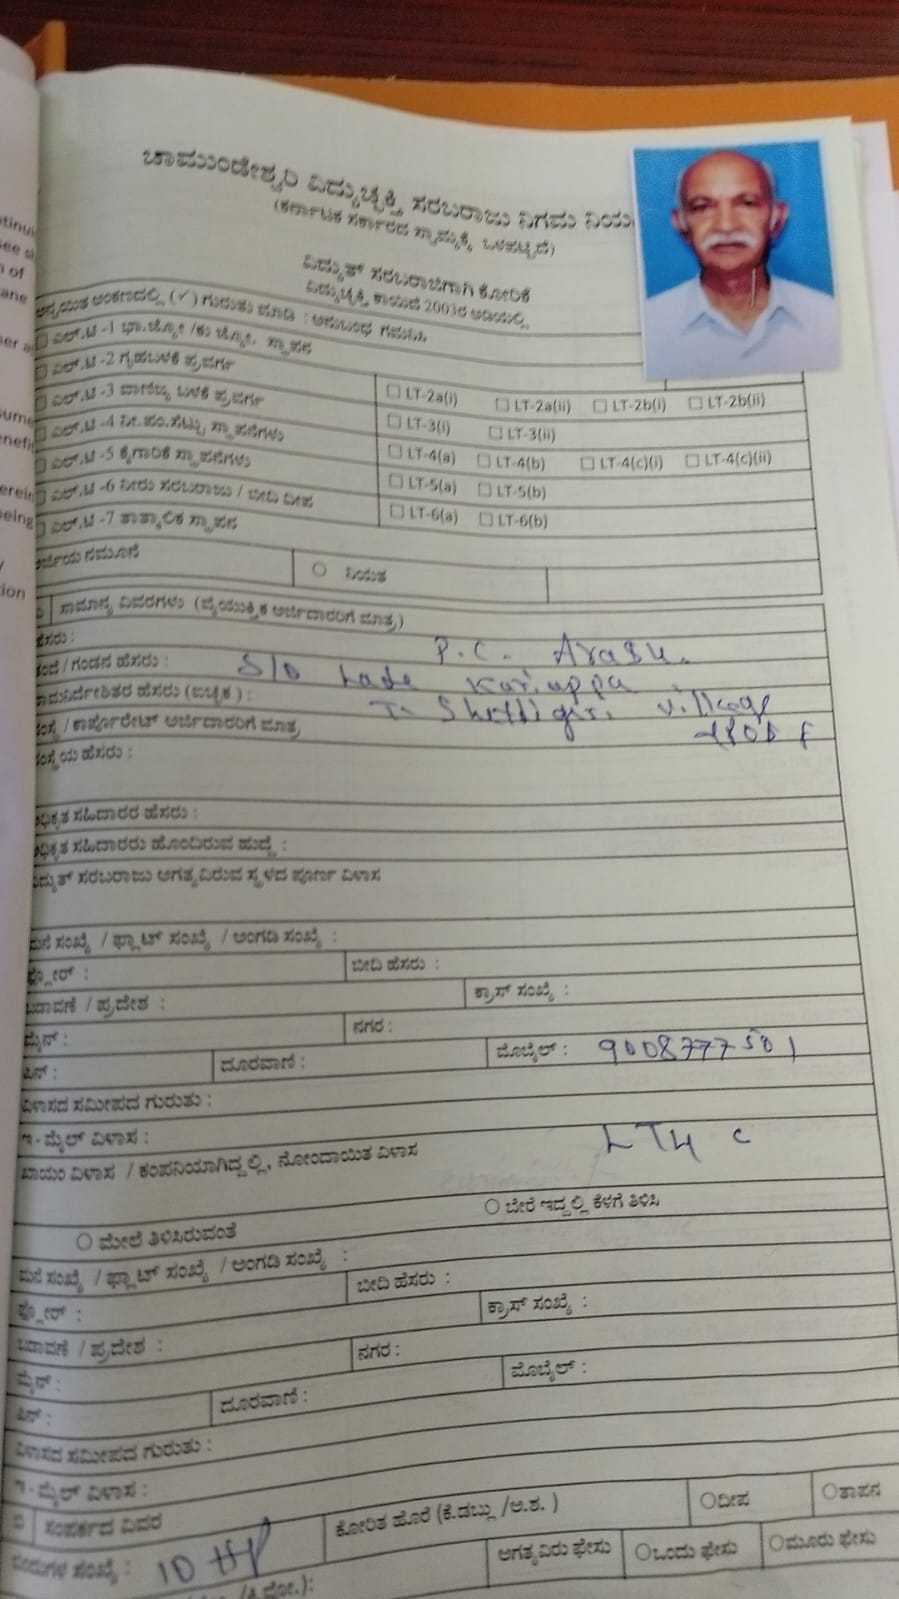 ಚಾಮುಂಡೇಶ್ವರಿ ವಿದ್ಯುಚ್ಛಕ್ತಿ ಸರಬರಾಜು ನಿಗಮ ನಿಯ
(ಕರ್ನಾಟಕ ಸರ್ಕಾರದ ಸ್ವಾಮ್ಯಕ್ಕೆ ಒಳಪಟ್ಟಿದೆ)
ವಿದ್ಯುತ್ ಸರಬರಾಜಿಗಾಗಿ ಕೋರಿಕೆ
ವಿದ್ಯುಚ್ಛಕ್ತಿ ಕಾಯಿದೆ 2003ರ ಅಡಿಯಲ್ಲಿ
ಅನ್ವಯಿತ ಅಂಕಣದಲ್ಲಿ (✓) ಗುರುತು ಮಾಡಿ : ಅನುಬಂಧ ಗಮನಿಸಿ
ಎಲ್.ಟಿ -1 ಭಾ.ಜ್ಯೋ /ಕು ಜ್ಯೋ. ಸ್ಥಾಪನ
ಎಲ್.ಟಿ -2 ಗೃಹಬಳಕೆ ಪ್ರವರ್ಗ LT-2a(i) LT-2a(ii) LT-2b(i) LT-2b(ii)
ಎಲ್.ಟಿ -3 ವಾಣಿಜ್ಯ ಬಳಕೆ ಪ್ರವರ್ಗ LT-3(i) LT-3(ii)
ಎಲ್.ಟಿ -4 ನೀ.ಪಂ.ಸೆಟ್ಟು ಸ್ಥಾಪನೆಗಳು LT-4(a) LT-4(b) LT-4(c)(i) LT-4(c)(ii)
ಎಲ್.ಟಿ -5 ಕೈಗಾರಿಕೆ ಸ್ಥಾಪನೆಗಳು LT-5(a) LT-5(b)
ಎಲ್.ಟಿ -6 ನೀರು ಸರಬರಾಜು / ಬೀದಿ ದೀಪ LT-6(a) LT-6(b)
ಎಲ್.ಟಿ -7 ತಾತ್ಕಾಲಿಕ ಸ್ಥಾಪನ
ಅರ್ಜಿಯ ನಮೂನೆ ನಿಯತ
ಸಾಮಾನ್ಯ ವಿವರಗಳು (ವೈಯುಕ್ತಿಕ ಅರ್ಜಿದಾರರಿಗೆ ಮಾತ್ರ)
ಹೆಸರು : P.C. Arasu.
ತಂದೆ / ಗಂಡನ ಹೆಸರು : S/o Late Kariappa
ನಾಮನಿರ್ದೇಶಿತರ ಹೆಸರು (ಐಚ್ಛಿಕ) : T. Shettigiri village
ಸಂಸ್ಥೆ / ಕಾರ್ಪೊರೇಟ್ ಅರ್ಜಿದಾರರಿಗೆ ಮಾತ್ರ
ಸಂಸ್ಥೆಯ ಹೆಸರು :
ಅಧಿಕೃತ ಸಹಿದಾರರ ಹೆಸರು :
ಅಧಿಕೃತ ಸಹಿದಾರರು ಹೊಂದಿರುವ ಹುದ್ದೆ :
ವಿದ್ಯುತ್ ಸರಬರಾಜು ಅಗತ್ಯವಿರುವ ಸ್ಥಳದ ಪೂರ್ಣ ವಿಳಾಸ
ಮನೆ ಸಂಖ್ಯೆ / ಫ್ಲಾಟ್ ಸಂಖ್ಯೆ / ಅಂಗಡಿ ಸಂಖ್ಯೆ :
ಫ್ಲೋರ್ : ಬೀದಿ ಹೆಸರು :
ಬಡಾವಣೆ / ಪ್ರದೇಶ : ಕ್ರಾಸ್ ಸಂಖ್ಯೆ :
ಮೈನ್ : ನಗರ :
ಪಿನ್ : ದೂರವಾಣಿ : ಮೊಬೈಲ್ : 9008777501
ವಿಳಾಸದ ಸಮೀಪದ ಗುರುತು :
ಇ-ಮೈಲ್ ವಿಳಾಸ : LT4 c
ಖಾಯಂ ವಿಳಾಸ / ಕಂಪನಿಯಾಗಿದ್ದಲ್ಲಿ, ನೋಂದಾಯಿತ ವಿಳಾಸ
ಮೇಲೆ ತಿಳಿಸಿರುವಂತೆ ಬೇರೆ ಇದ್ದಲ್ಲಿ ಕೆಳಗೆ ತಿಳಿಸಿ
ಮನೆ ಸಂಖ್ಯೆ / ಫ್ಲಾಟ್ ಸಂಖ್ಯೆ / ಅಂಗಡಿ ಸಂಖ್ಯೆ :
ಫ್ಲೋರ್ : ಬೀದಿ ಹೆಸರು :
ಬಡಾವಣೆ / ಪ್ರದೇಶ : ಕ್ರಾಸ್ ಸಂಖ್ಯೆ :
ಮೈನ್ : ನಗರ :
ಪಿನ್ : ದೂರವಾಣಿ : ಮೊಬೈಲ್ :
ವಿಳಾಸದ ಸಮೀಪದ ಗುರುತು :
ಇ-ಮೈಲ್ ವಿಳಾಸ :
ಸಂಪರ್ಕದ ವಿವರ ಕೋರಿತ ಹೊರೆ (ಕೆ.ಡಬ್ಲು /ಅ.ಶ. ) ದೀಪ ತಾಪನ
ಸಂಖ್ಯೆ : 10 HP ಅಗತ್ಯವಿರು ಫೇಸು ಒಂದು ಫೇಸು ಮೂರು ಫೇಸು